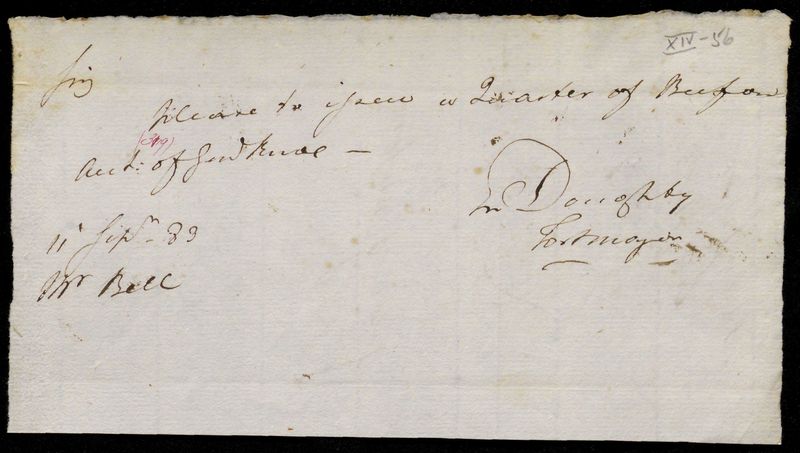 XIV-56
Sir
Please to issue a Quarter of Beef on
Acct: of Genl Knox —
Jn Doughty
Fortmajor
11th Sepr. 83
Mr Bell